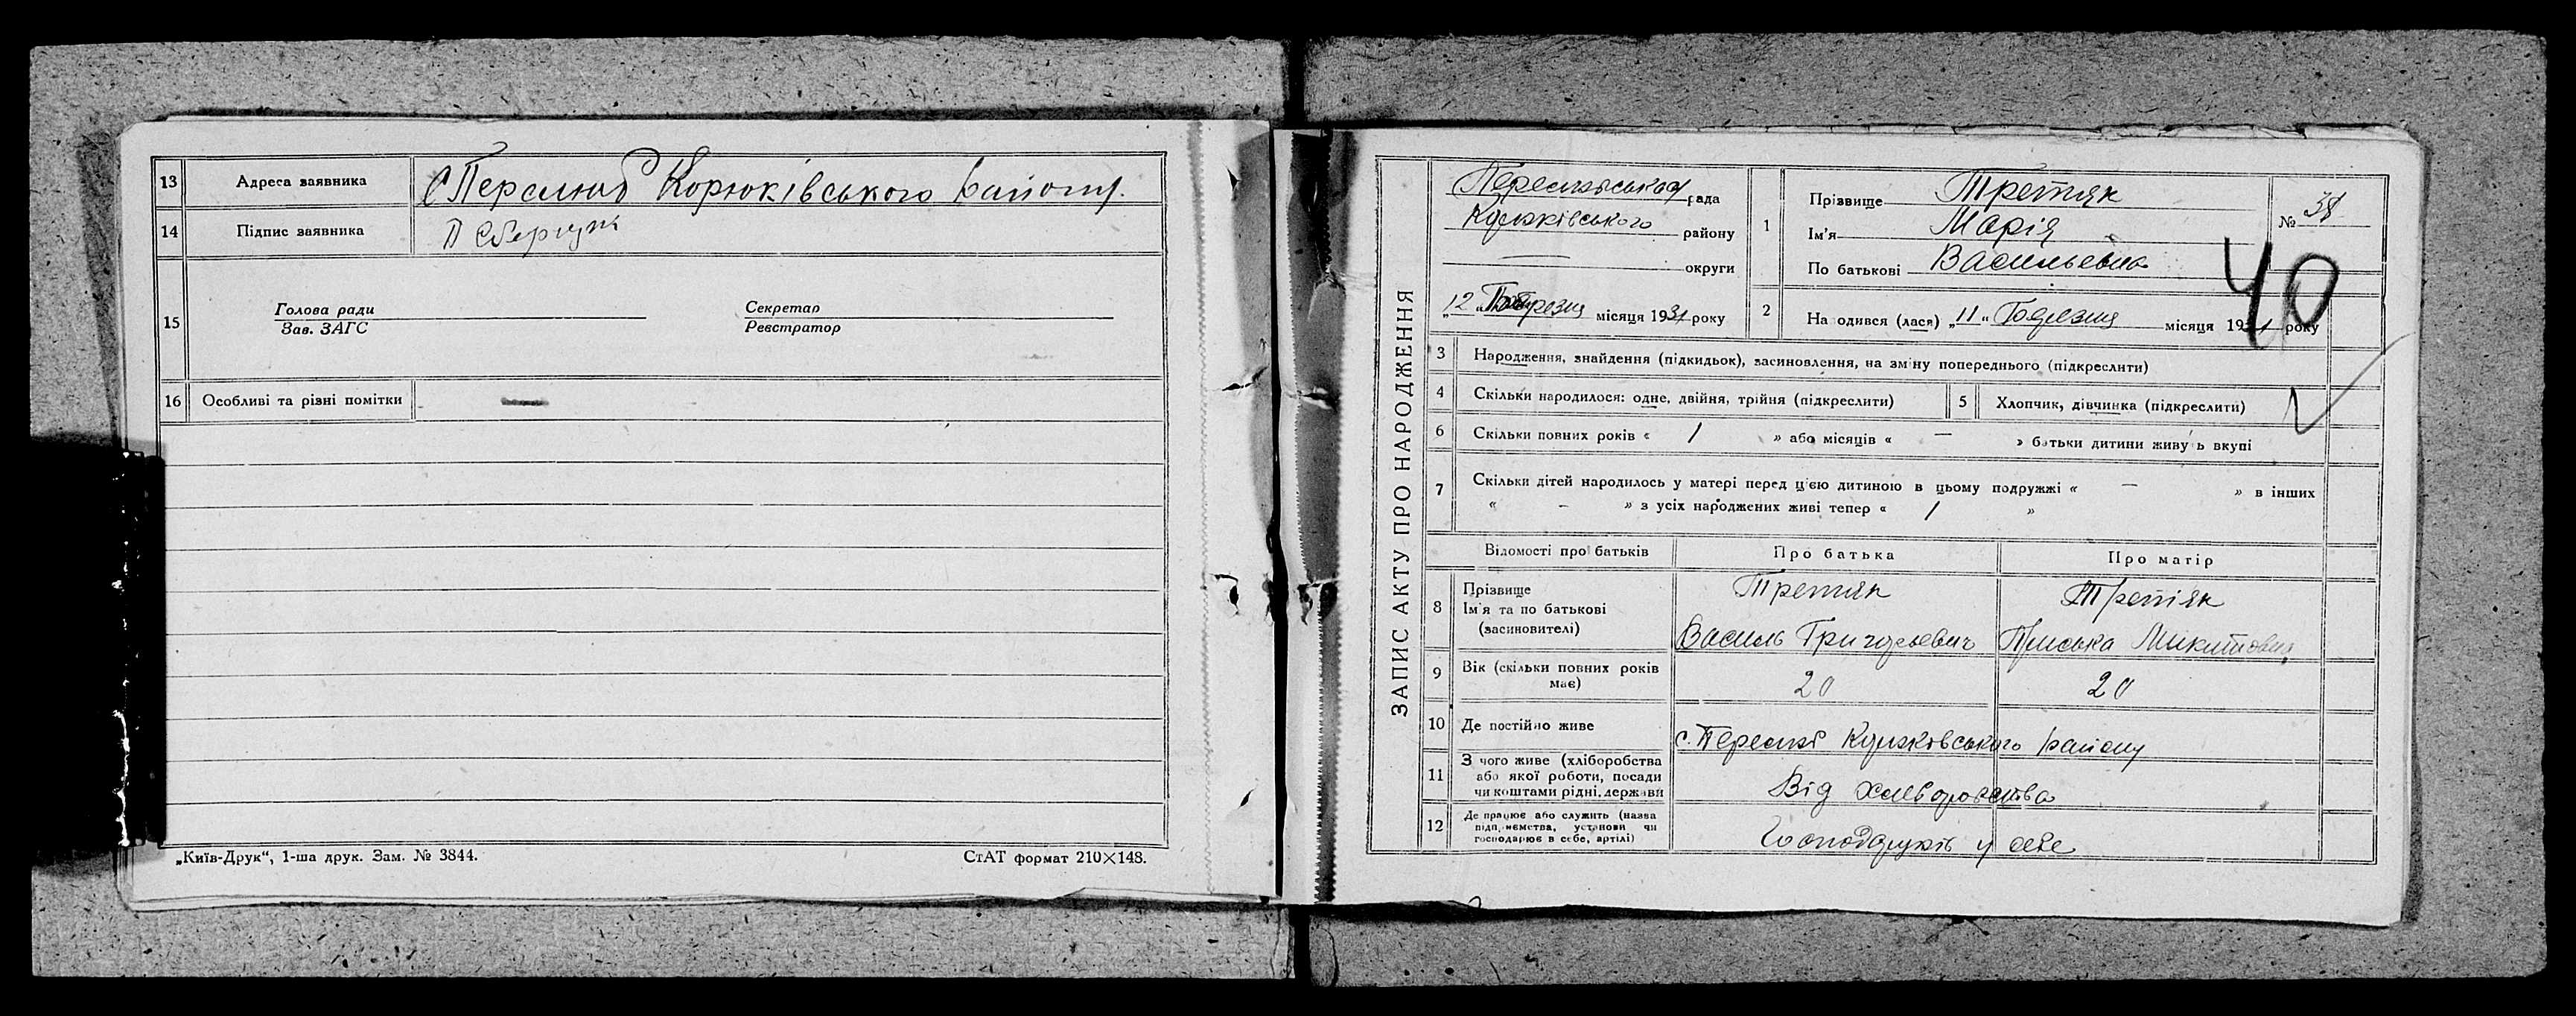 13 Адреса заявника С Перелюб Корюківського району.
14 Підпис заявника П
15
Голова ради Секретар
Зав. ЗАГС Реєстратор
16 Особливі та різні помітки —
„Київ-Друк“, 1-ша друк. Зам. № 3844. СтАТ формат 210×148.
ЗАПИС АКТУ ПРО НАРОДЖЕННЯ
рада
району
— округи
„12 “ березня місяця 1931 року
1 Прізвище Третяк
Ім'я Марія
По батькові Васильевна
№ 38
40
2 На одився (лася) „11“ Березня місяця 1931 року
3 Народження, знайдення (підкидьок), засиновлення, на зміну попереднього (підкреслити)
4 Скільки народилося: одне, двійня, трійня (підкреслити) 5 Хлопчик, дівчинка (підкреслити)
6 Скільки повних років « 1 » або місяців « — » батьки дитини живуть вкупі
7 Скільки дітей народилось у матері перед цією дитиною в цьому подружжі « — » в інших
« - » з усіх народжених живі тепер « 1 »
Відомості про батьків Про батька Про матір
8 Прізвище Третяк Третяк
Ім'я та по батькові
(засиновителі) Василь Григорьевич Приська Микитовна
9 Вік (скільки повних років
має) 20 20
10 Де постійно живе с. району
11 З чого живе (хліборобства
або якої роботи, посади
чи коштами рідні, держави Від хлеборобства
12 Де працює або служить (назва
підприємства, установи чи
господарює в себе, артілі) у себе